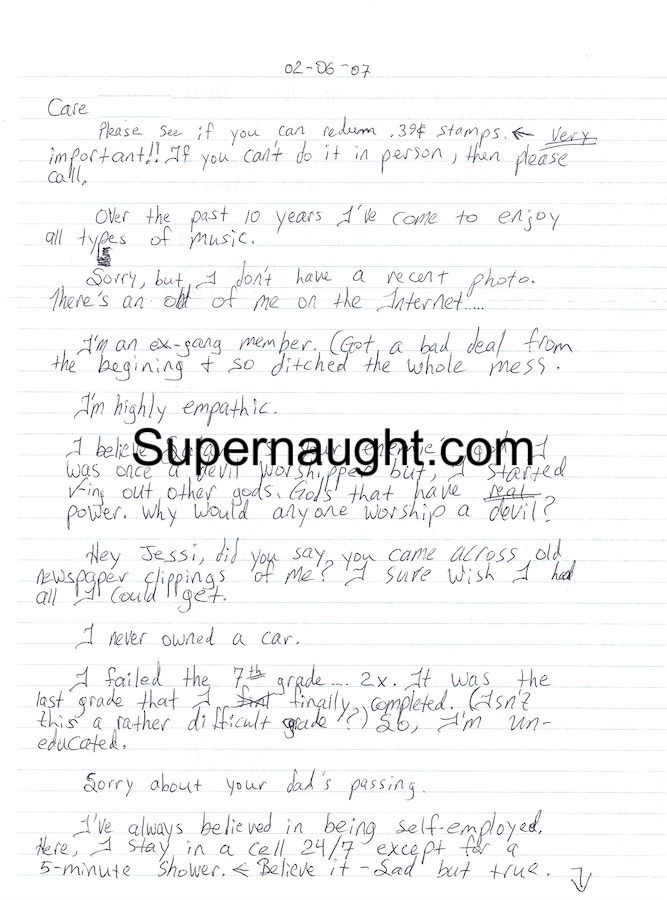 02-06-07
Care
Please see if you can redeem .39¢ stamps. ← Very
important!! If you can't do it in person, then please
call.
Over the past 10 years I've come to enjoy
all types of music.
Sorry, but I don't have a recent photo.
There's an old of me on the Internet.....
I'm an ex-gang member. (Got a bad deal from
the begining & so ditched the whole mess.
I'm highly empathic.
I believe enemie's I
Supernaught.com
was once a devil worshipper but, I started
out other gods. Gods that have real
power. Why would anyone worship a devil?
Hey Jessi, did you say you came across old
newspaper clippings of me? I sure wish I had
all I could get.
I never owned a car.
I failed the 7th grade.... 2x. It was the
last grade that I finally completed. (Isn't
this a rather difficult grade?) So, I'm un-
educated.
Sorry about your dad's passing.
I've always believed in being self-employed.
Here, I stay in a cell 24/7 except for a
5-minute shower. ← Believe it - Sad but true. ↓